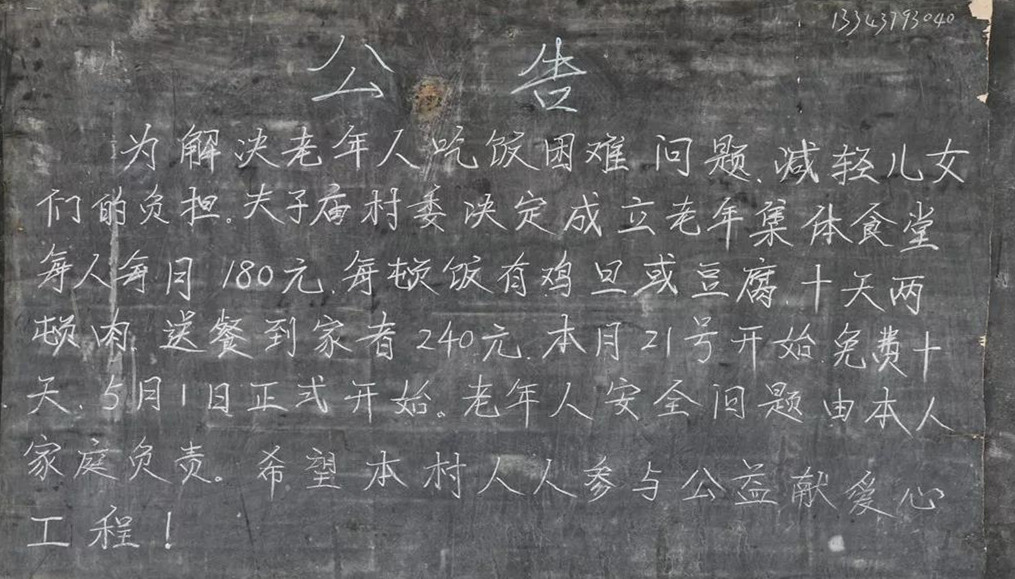 13343793040
公告
为解决老年人吃饭困难问题.减轻儿女
们的负担。夫子庙村委决定成立老年集体食堂
每人每月180元.每顿饭有鸡旦或豆腐.十天两
顿肉.送餐到家者240元.本月21号开始.免费十
天.5月1日正式开始。老年人安全问题由本人
家庭负责。希望本村人人参与公益献爱心
工程!